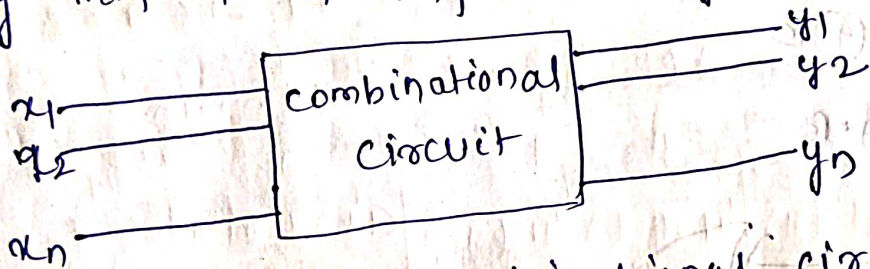 x1
x2
xn
combinational
circuit
y1
y2
yn
cir